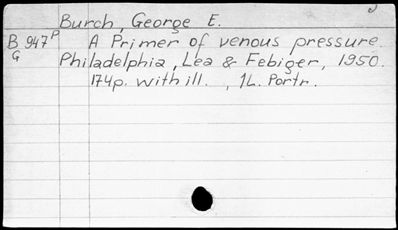 Burch, George E.
B 947P A Primer of venous pressure.
G Philadelphia, Lea & Febiger, 1950.
174p. with ill. , 1L. Portr.